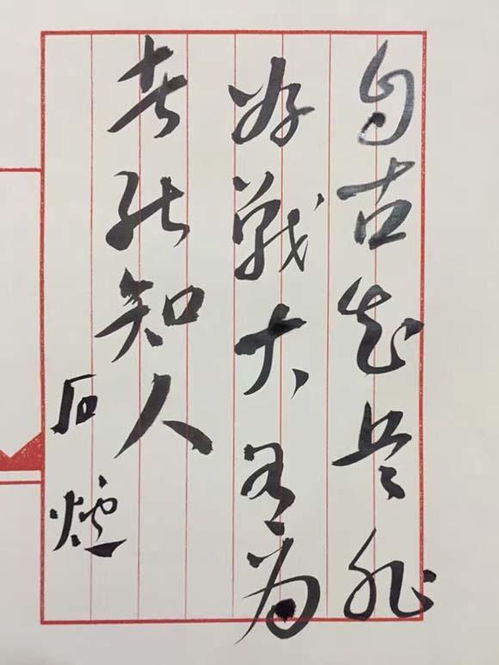 自古知兵非
好战大有为
者能知人
石炉